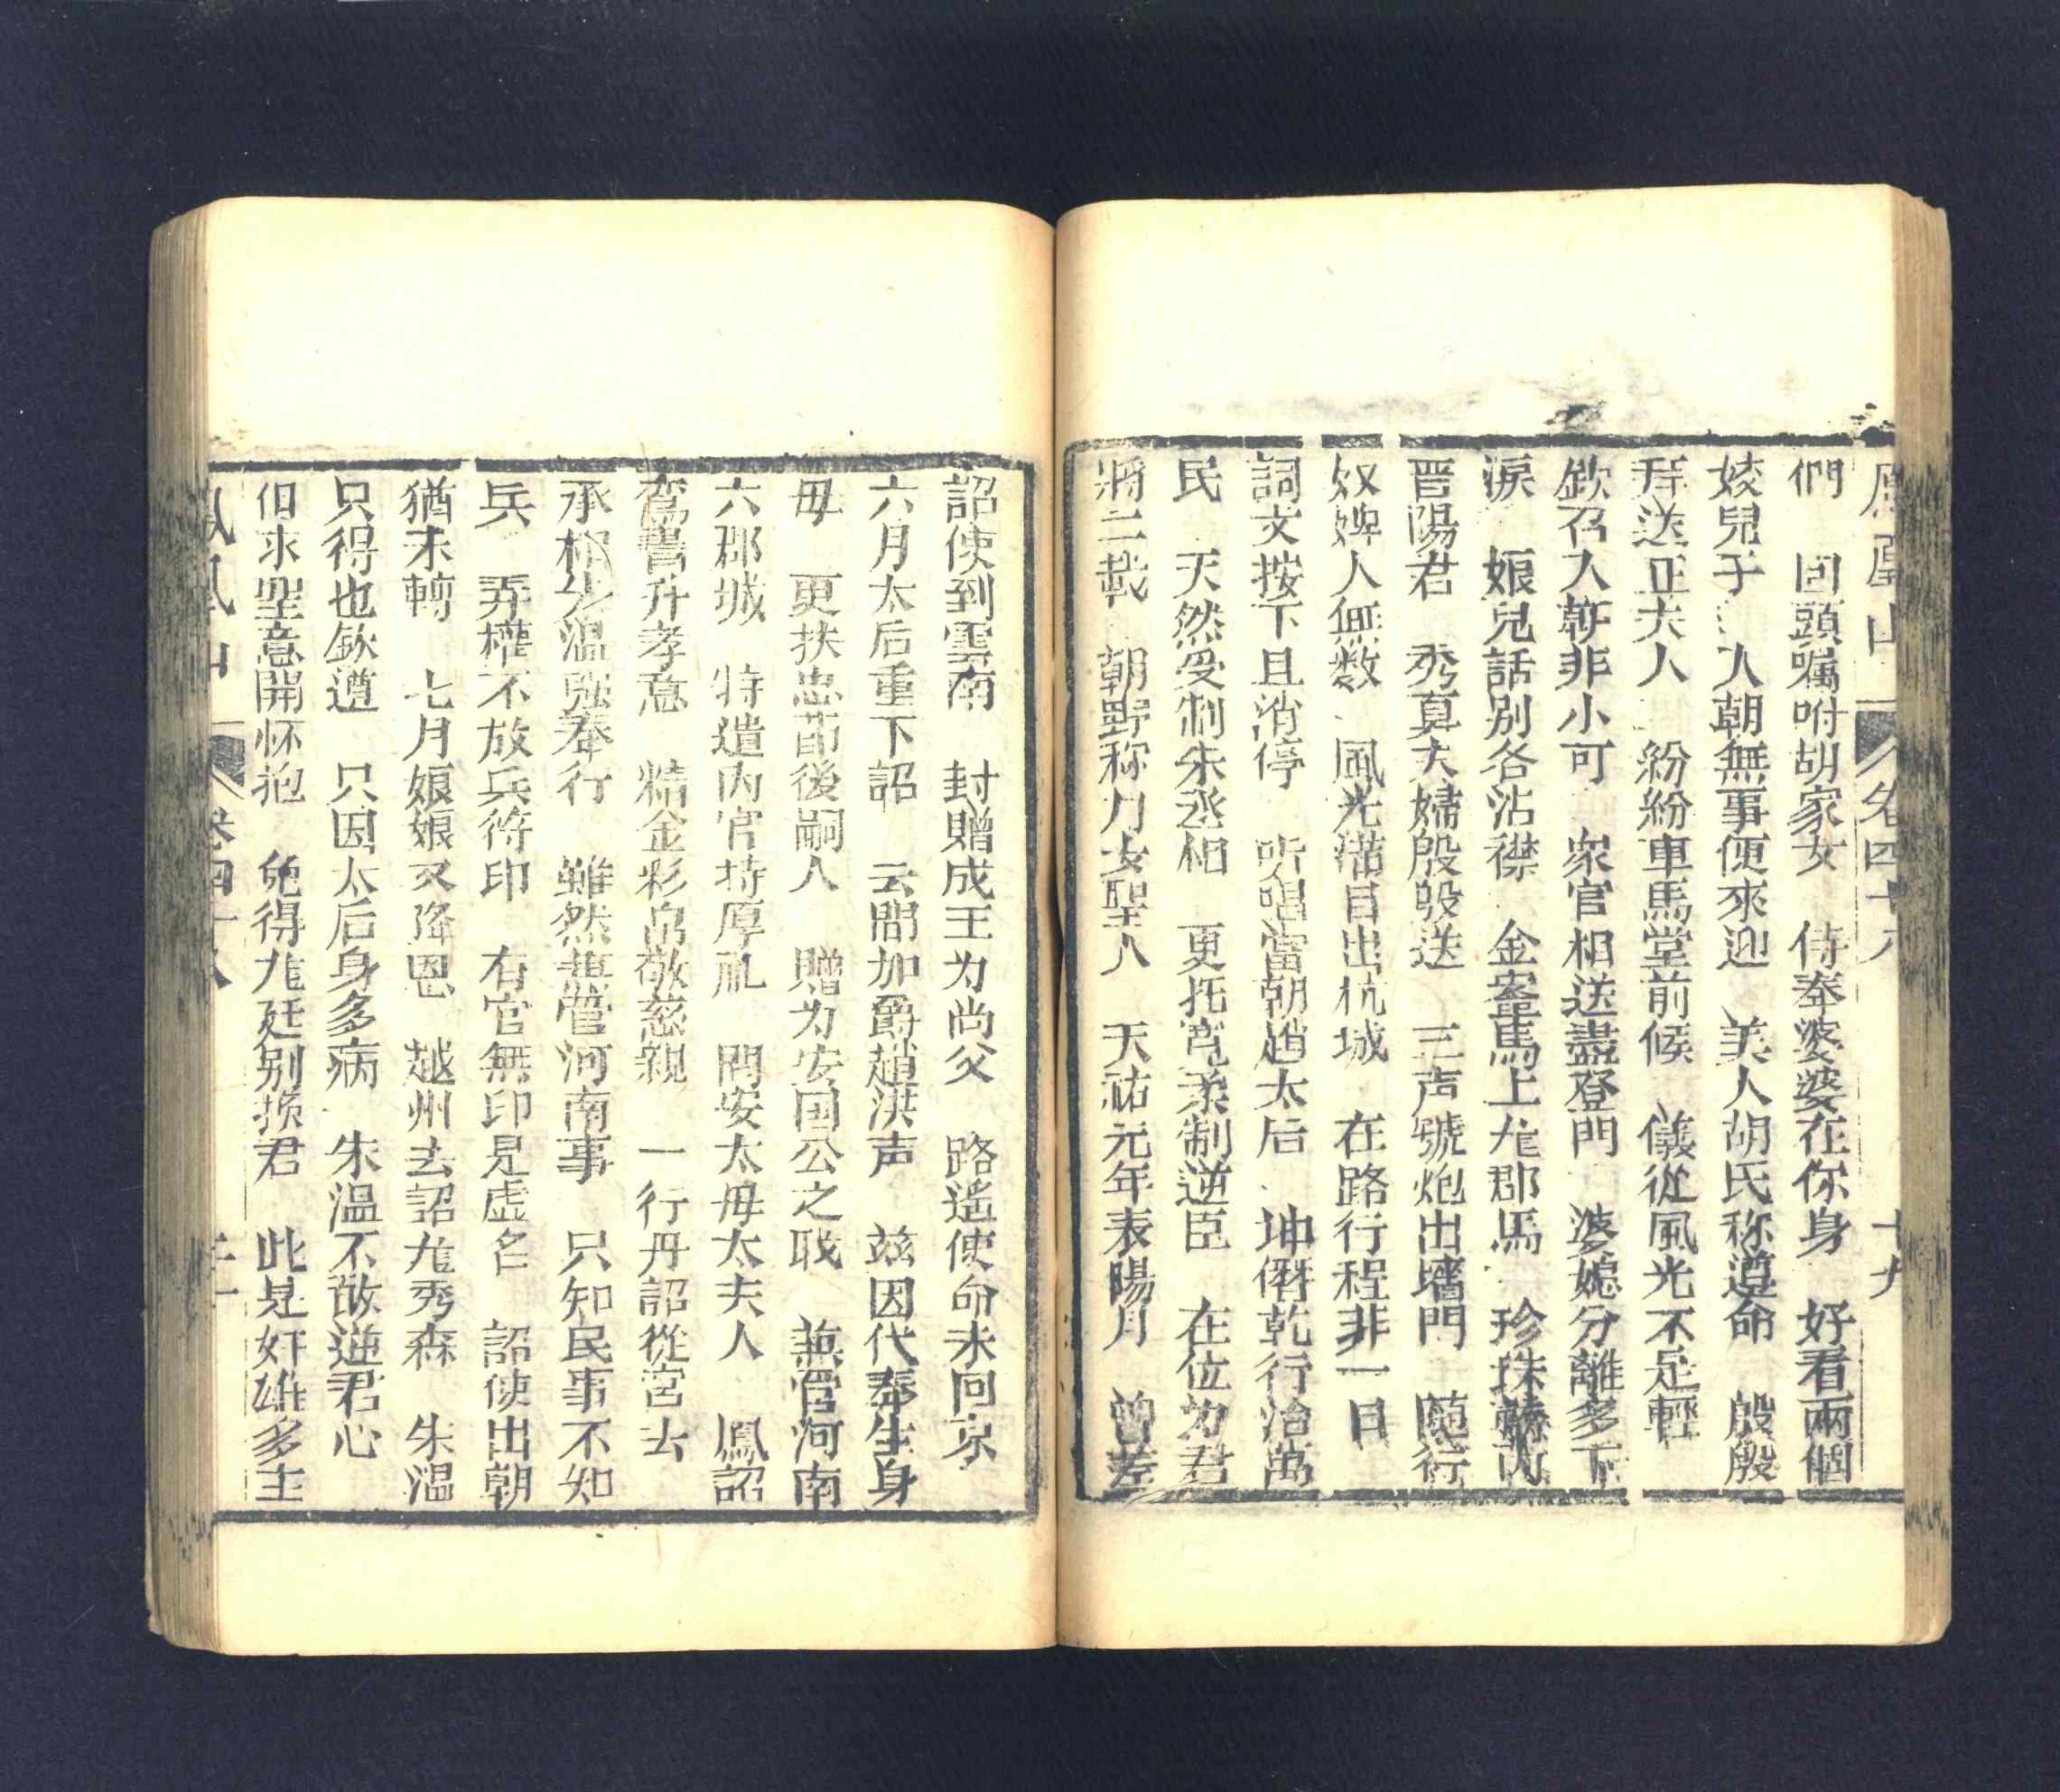 鳳凰山 卷四十八 十九
們 回頭囑咐胡家女 侍奉婆婆在你身 好看兩個
姣兒子 入朝無事便來迎 美人胡氏称遵命 殷殷
拜送正夫人 紛紛車馬堂前候 儀從風光不足輕
欽召入朝非小可 衆官相送盡登門 婆媳分離多下
淚 娘兒話別各沾襟 金鞍馬上尨郡馬 珍珠轎內
晋陽君 秀夏夫婦殷殷送 三声號炮出墻門 隨行
奴婢人無数 風光滿目出杭城 在路行程非一日
詞文按下且消停 听唱當朝趙太后 坤僭乾行治萬
民 天然受制朱丞相 更托寬柔制逆臣 在位为君
將二載 朝野称为女聖人 天祐元年表陽月 曾差
詔使到雲南 封贈成王为尚父 路遙使命未回京
六月太后重下詔 云間加爵趙洪声 兹因代奉生身
母 更扶忠節後嗣人 贈为安国公之职 兼管河南
六郡城 特遣內官持厚礼 問安太母太夫人 鳳詔
鸞書升孝意 精金彩帛敬慈親 一行丹詔從宮去
承相朱温强奉行 雖然趙管河南事 只知民事不知
兵 弄權不放兵符印 有官無印是虚名 詔使出朝
猶未轉 七月娘娘又降恩 越州去詔尨秀森 朱温
只得也欽遵 只因太后身多病 朱温不敢逆君心
但求聖意開怀抱 免得尨廷别換君 此是奸雄多主
鳳凰山 卷四十八 二十